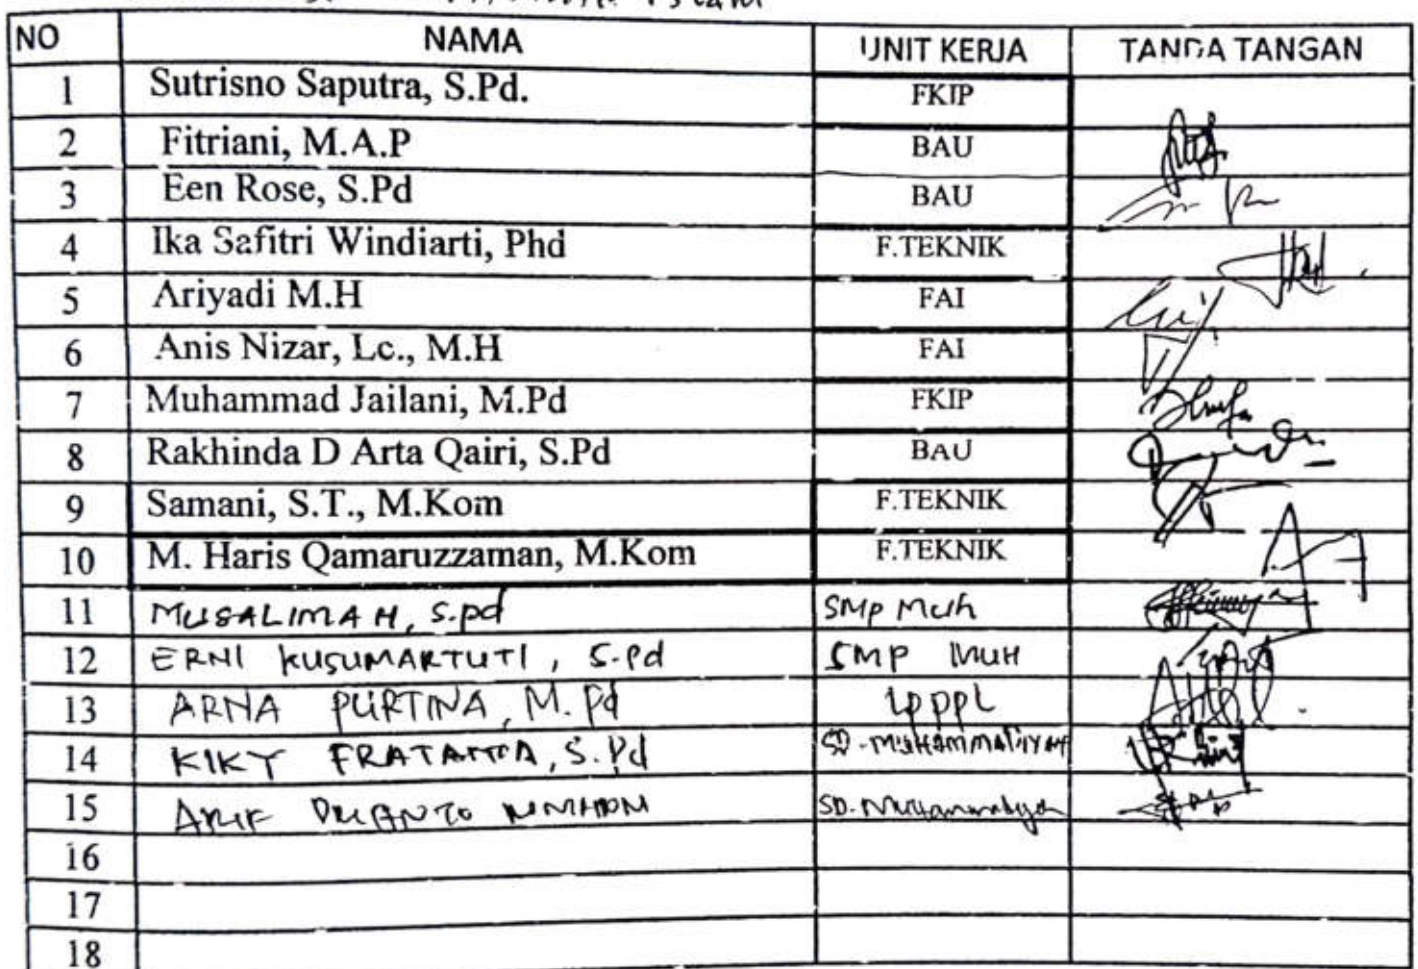 NO NAMA UNIT KERJA TANDA TANGAN
1 Sutrisno Saputra, S.Pd. FKIP
2 Fitriani, M.A.P BAU
3 Een Rose, S.Pd BAU
4 Ika Safitri Windiarti, Phd F.TEKNIK
5 Ariyadi M.H FAI
6 Anis Nizar, Lc., M.H FAI
7 Muhammad Jailani, M.Pd FKIP
8 Rakhinda D Arta Qairi, S.Pd BAU
9 Samani, S.T., M.Kom F.TEKNIK
10 M. Haris Qamaruzzaman, M.Kom F.TEKNIK
11 MUSALIMAH, S.pd SMp Muh
12 ERNI KUSUMARTUTI, S.Pd SMP MUH
13 ARNA PURTINA, M.Pd LPPPL
14 KIKY PRATAMA, S.Pd SD-MUHAMMADIYAH
15 SD-Muhammadiyah
16
17
18